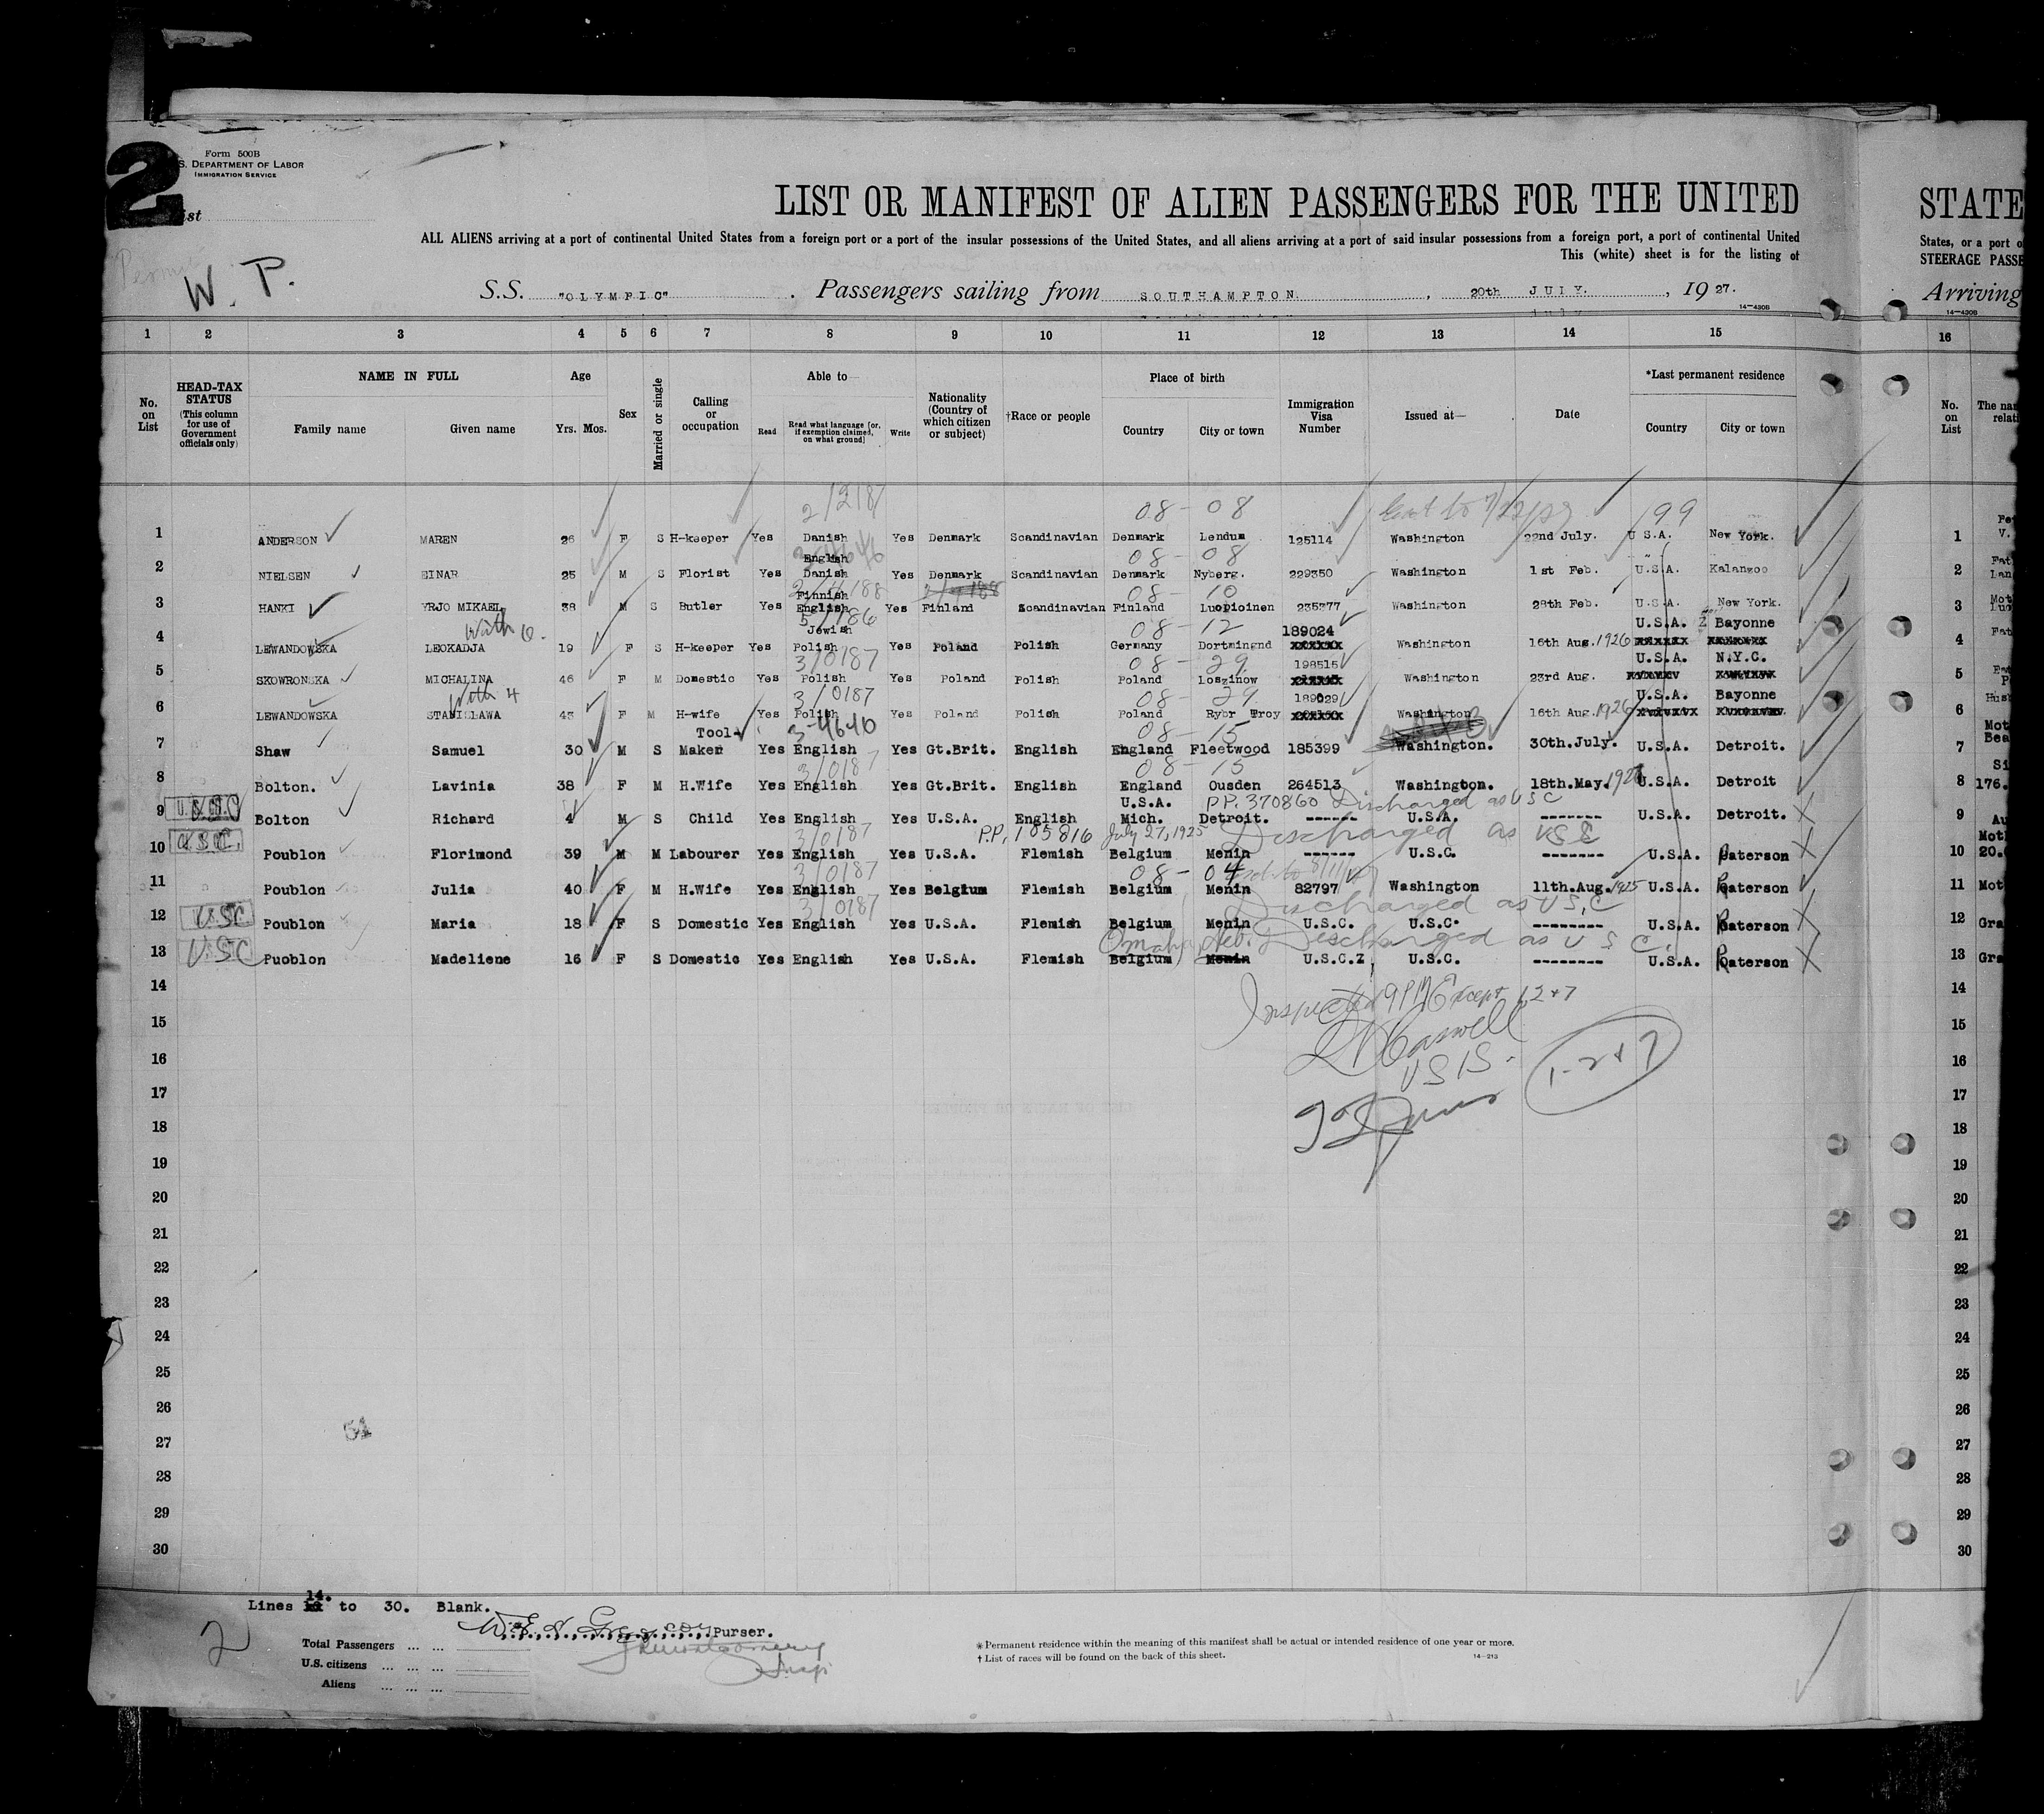 2
Form 500B
S. DEPARTMENT OF LABOR
IMMIGRATION SERVICE
ist
W. P.
LIST OR MANIFEST OF ALIEN PASSENGERS FOR THE UNITED
ALL ALIENS arriving at a port of continental United States from a foreign port or a port of the insular possessions of the United States, and all aliens arriving at a port of said insular possessions from a foreign port, a port of continental United
This (white) sheet is for the listing of
S.S. "OLYMPIC" . Passengers sailing from SOUTHAMPTON. , 20th JULY. , 19 27.
14-430B
STATE
States, or a port o
STEERAGE PASSE
Arriving
14-430B
1 2 3 4 5 6 7 8 9 10 11 12 13 14 15 16
No. on List
HEAD-TAX STATUS (This column for use of Government officials only)
NAME IN FULL
Family name Given name
Age
Yrs. Mos.
Sex
Married or single
Calling or occupation
Able to
Read
Read what language [or, if exemption claimed, on what ground]
Write
Nationality (Country of which citizen or subject)
†Race or people
Place of birth
Country City or town
Immigration Visa Number
Issued at—
Date
*Last permanent residence
Country City or town
No. on List
The na
relati
2/2187 08 - 08 199
1 ANDERSON MAREN 26 F S H-keeper Yes Danish Yes Denmark Scandinavian Denmark Lendum 125114 Washington 22nd July. U S.A. New York. 1
English 08 - 08
2 NIELSEN EINAR 25 M S Florist Yes Danish Yes Denmark Scandinavian Denmark Nyberg. 229350 Washington 1st Feb. U.S.A. Kalanzoo 2
Finnish 08 - 10
3 HANKI YRJO MIKAEL 38 M S Butler Yes English Yes Finland Scandinavian Finland Luopioinen 235377 Washington 28th Feb. U.S.A. New York. 3
With 6. 5/186 Jewish 08 - 12 189024 U.S.A. Bayonne
4 LEWANDOWSKA LEOKADJA 19 F S H-keeper Yes Polish Yes Poland Polish Germany Dortmingnd xxxxxx Washington 16th Aug. 1926 xxxxxx xxxxxxx 4
3/0187 08 - 29 198515 U.S.A. N.Y.C.
5 SKOWRONSKA MICHALINA 46 F M Domestic Yes Polish Yes Poland Polish Poland Loszinow Washington 23rd Aug. 5
With 4 3/0187 08 - 29 189029 U.S.A. Bayonne
6 LEWANDOWSKA STANISLAWA 43 F M H-wife Yes Polish Yes Poland Polish Poland Rybr Troy Washington 16th Aug. 1926 6
Tool- 3-4640 08 - 15
7 Shaw Samuel 30 M S Maker Yes English Yes Gt.Brit. English England Fleetwood 185399 Washington. 30th.July. U.S.A. Detroit. 7
3/0187 08 - 15
8 Bolton. Lavinia 38 F M H.Wife Yes English Yes Gt.Brit. English England Ousden 264513 Washington. 18th.May. U.S.A. Detroit 8 176.
U.S.A. PP. 370860 Discharged as USC
9 U.S.C Bolton Richard 4 M S Child Yes English Yes U.S.A. English Mich. Detroit. ------ U.S.A. -------- U.S.A. Detroit. 9
3/0187 P.P. 105816 July 27, 1925 Discharged as USC
10 U.S.C. Poublon Florimond 39 M M Labourer Yes English Yes U.S.A. Flemish Belgium Menin ------ U.S.C. -------- U.S.A. Paterson 10 20.
3/0187 08 - 04
11 Poublon Julia 40 F M H.Wife Yes English Yes Belgium Flemish Belgium Menin 82797 Washington 11th.Aug. 1925 U.S.A. Paterson 11 Mot
3/0187 Discharged as USC
12 USC Poublon Maria 18 F S Domestic Yes English Yes U.S.A. Flemish Belgium Menin U.S.C. U.S.C. -------- U.S.A. Paterson 12 Gra
Omaha, Neb. Discharged as U S C.
13 USC Puoblon Madeliene 16 F S Domestic Yes English Yes U.S.A. Flemish Belgium Menin U.S.C.Z U.S.C. -------- U.S.A. Paterson 13 Gra
14 14
Inspected 9PM Except 1 2 + 7
15 15
Caswell
16 16
USIS.
1-2+7
17 17
18 18
19 19
20 20
21 21
22 22
23 23
24 24
25 25
26 26
27 27
28 28
29 29
30 30
14.
Lines to 30. Blank.
Purser.
2
Total Passengers ... ...
U.S. citizens ... ... ...
Aliens ... ... ...
*Permanent residence within the meaning of this manifest shall be actual or intended residence of one year or more.
† List of races will be found on the back of this sheet.
14-213